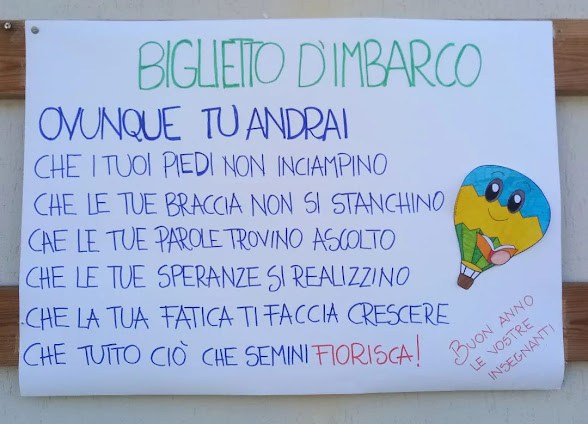 BIGLIETTO D'IMBARCO
OVUNQUE TU ANDRAI
CHE I TUOI PIEDI NON INCIAMPINO
CHE LE TUE BRACCIA NON SI STANCHINO
CHE LE TUE PAROLE TROVINO ASCOLTO
CHE LE TUE SPERANZE SI REALIZZINO
CHE LA TUA FATICA TI FACCIA CRESCERE
CHE TUTTO CIÒ CHE SEMINI FIORISCA!
BUON ANNO
LE VOSTRE
INSEGNANTI